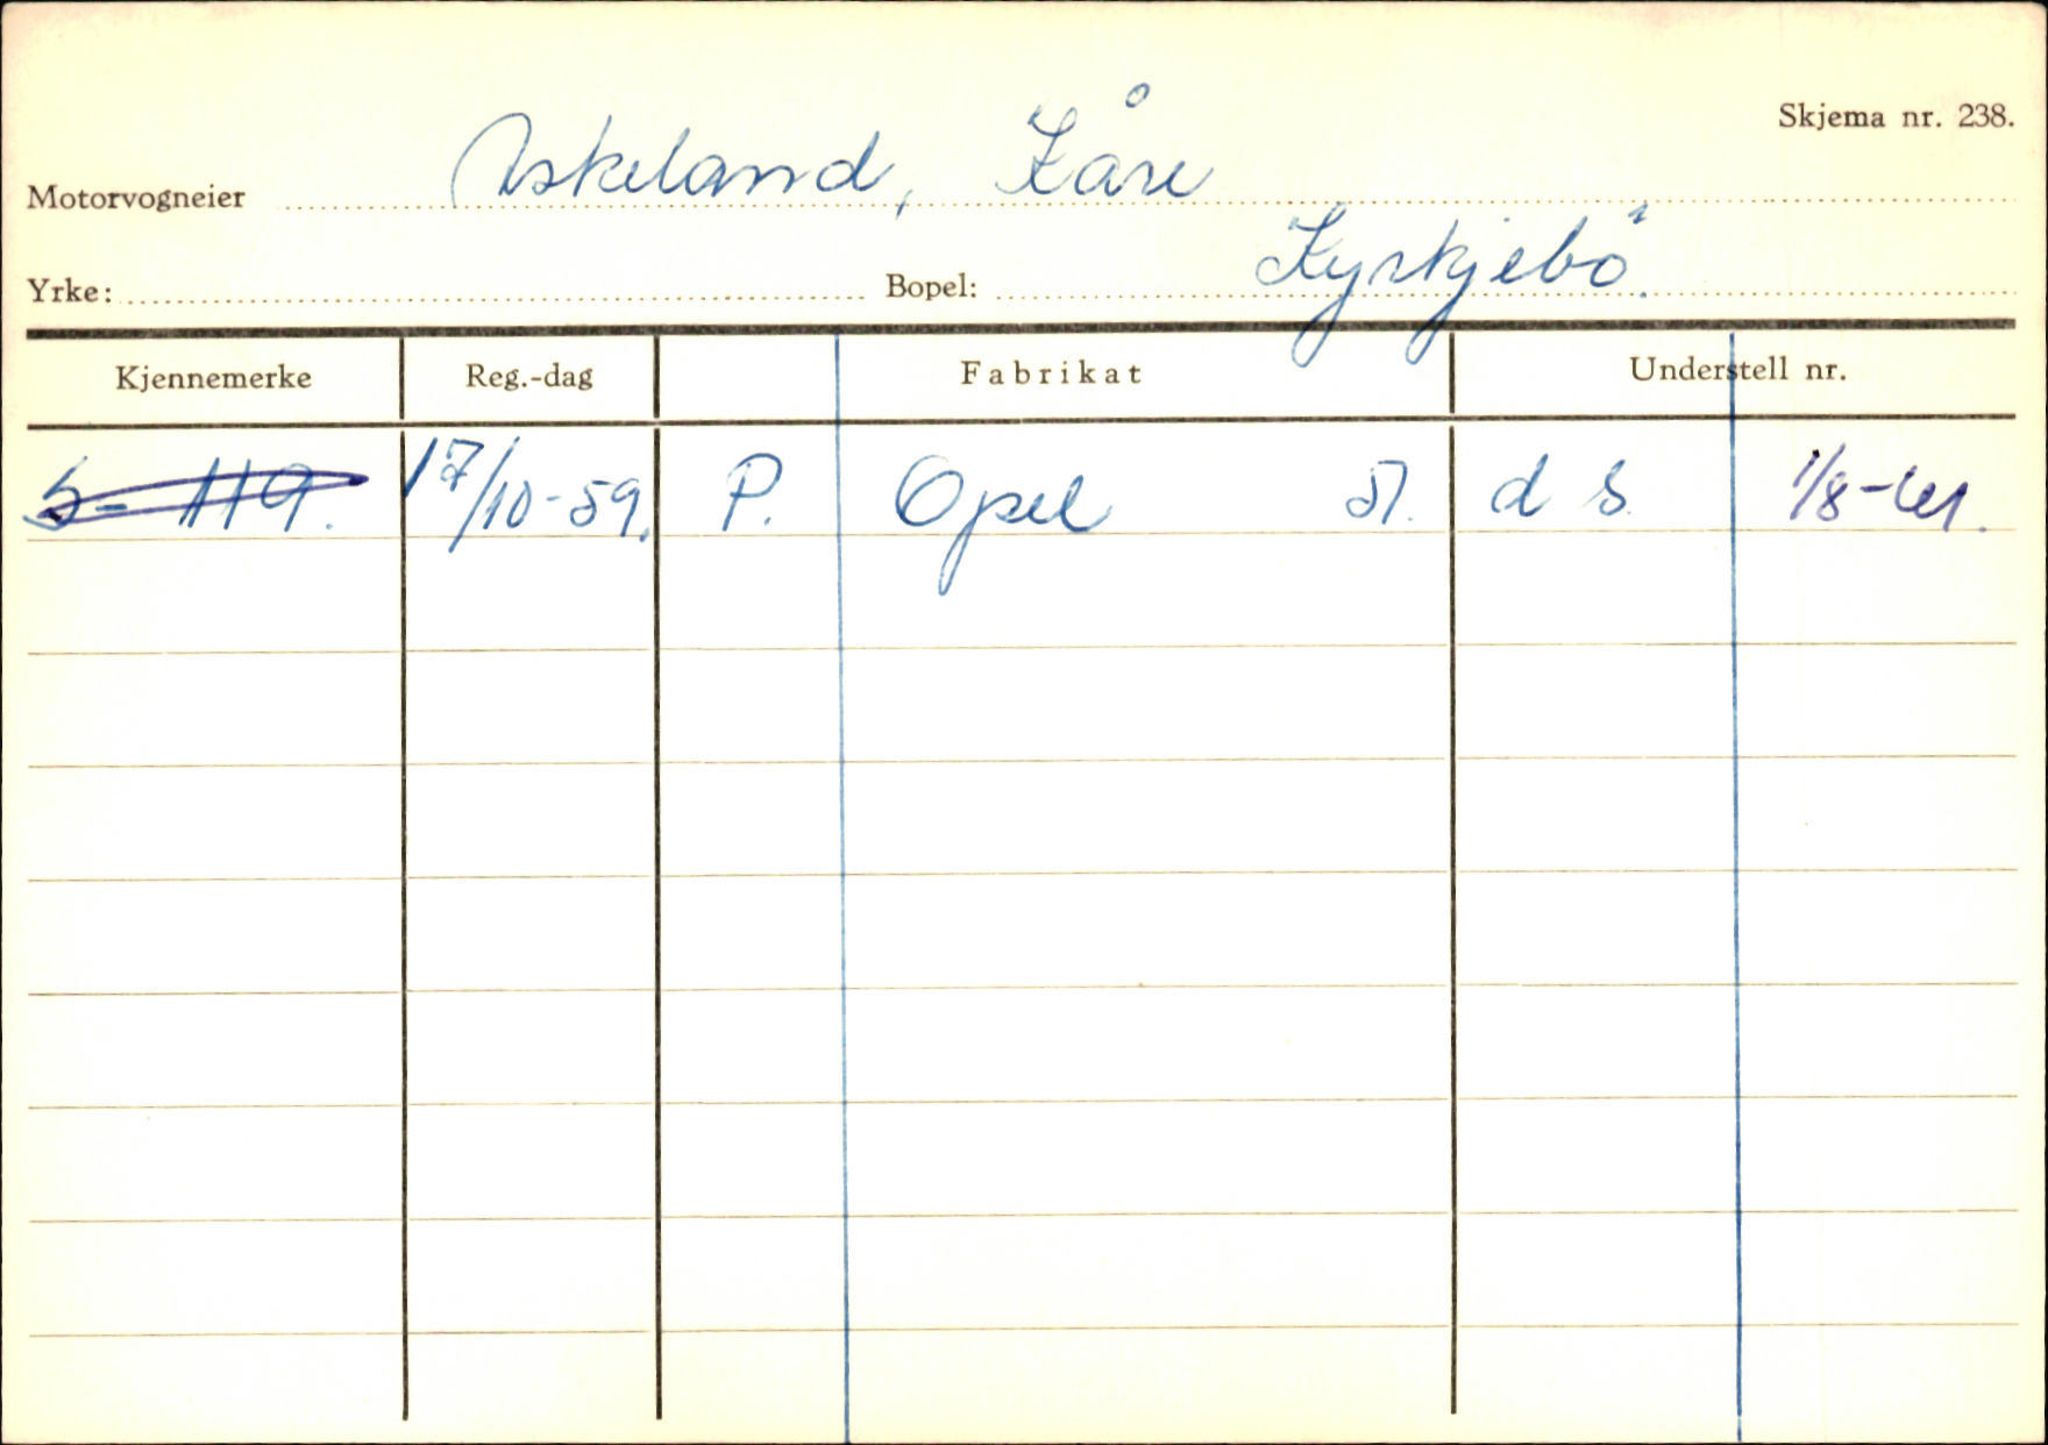 Skjema nr. 238.
Motorvogneier Askeland, Kåre
Yrke: Bopel: Kyrkjebø.
Kjennemerke Reg.-dag Fabrikat Understell nr.
S- 119. 17/10-59. P. Opel 51. d s. 1/8-61.